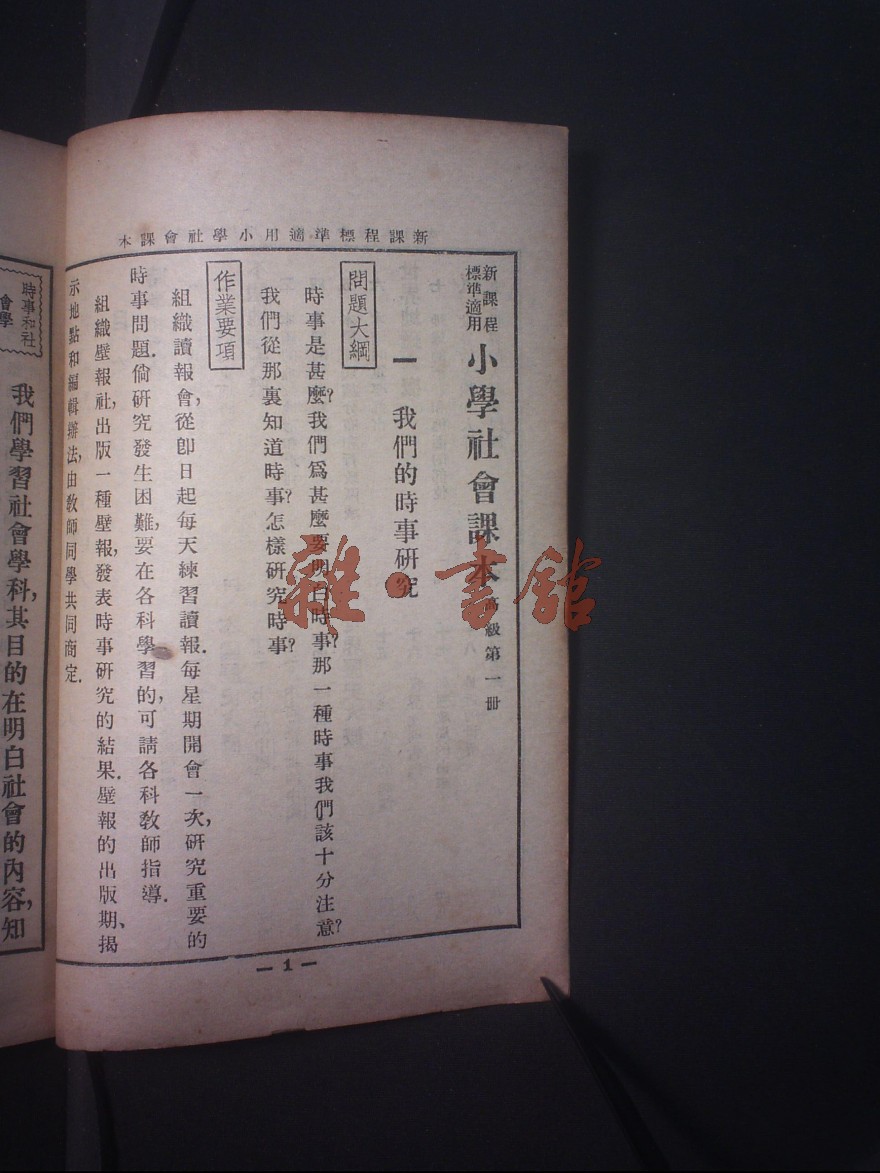 新課程標準適用小學社會課本
新課程
標準適用
小學社會課本 高級第一冊
一 我們的時事研究
問題大綱
時事是甚麼?我們爲甚麼要明白時事?那一種時事我們該十分注意?
我們從那裏知道時事?怎樣研究時事?
作業要項
組織讀報會,從卽日起每天練習讀報.每星期開會一次,研究重要的
時事問題.倘研究發生困難,要在各科學習的,可請各科教師指導.
組織壁報社,出版一種壁報,發表時事研究的結果.壁報的出版期、揭
示地點和編輯辦法,由教師同學共同商定.
— 1 —
時事和社
會學
我們學習社會學科,其目的在明白社會的內容,知
雜·書館